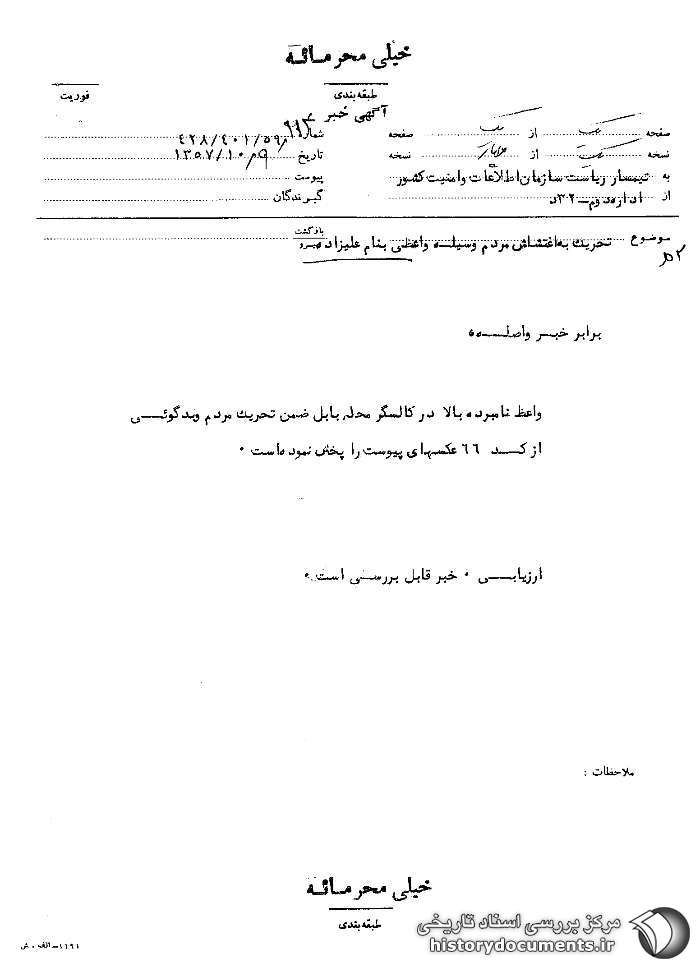 خیلی محرمانه
طبقه‌بندی
فوریت
آگهی خبر
صفحه یک از یک صفحه
شماره ۴۲۸/۴۰۱/۵۹۰
نسخه یک از چهار نسخه
تاریخ ۱۳۵۷/۱۰/۹
به تیمسار ریاست سازمان اطلاعات و امنیت کشور
پیوست
از اداره دوم - ۳۲د
گیرندگان
موضوع تحریک به اغتشاش مردم وسیله واعظی بنام علیزاده
بازگشت
پیرو
برابر خبر واصلــه
واعظ نامبرده بالا در کالسگر محله بابل ضمن تحریک مردم وبدگوئــی
از کــد ۶۶ عکسهای پیوست را پخش نموده است ۰
ارزیابــی ۰ خبر قابل بررسی است ۰
ملاحظات :
خیلی محرمانه
طبقه‌بندی
۱۱۶۱ - الف - ش
مرکز بررسی اسناد تاریخی
historydocuments.ir